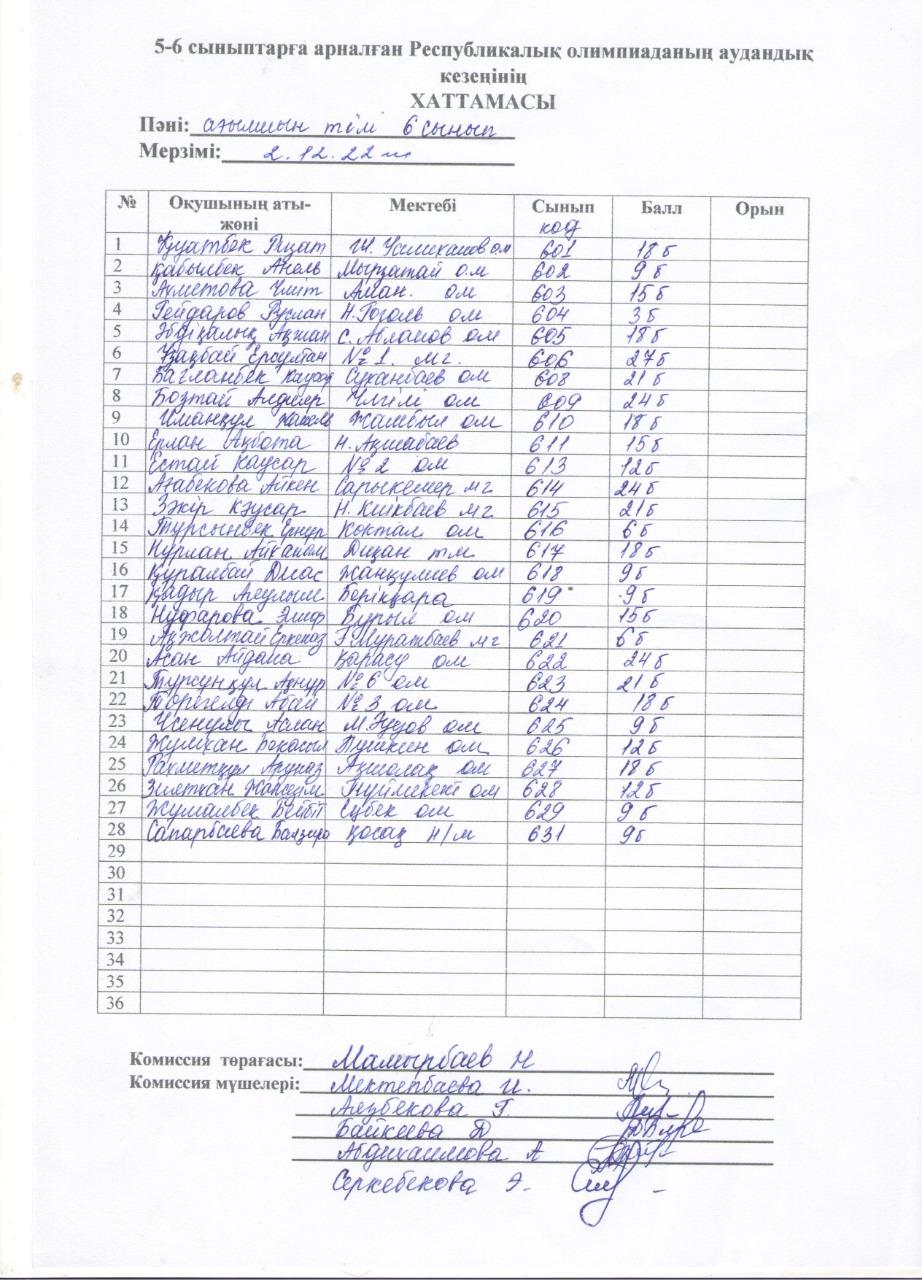 5-6 сыныптарға арналған Республикалық олимпиаданың аудандық
кезеңінің
ХАТТАМАСЫ
Пәні: ағылшын тілі 6 сынып
Мерзімі: 2.12.22 ж
№ Оқушының аты-жөні Мектебі Сынып код Балл Орын
1 Қуатбек Ризат Ш. Усипехановом 601 18 б
2 Қабылбек Анель Мырзатай о.м 602 9 б
3 Ахметова Үміт Аман. ом 603 15 б
4 Гейдаров Руслан Н.Гоголь ом 604 3 б
5 Әбдіқалық Ақжан С. Абланов ом 605 18 б
6 Ұзақбай Ерсұлтан №1. мг. 606 27 б
7 Бағланбек Каусар Суханбаев ом 608 21 б
8 Бозтай Үлгілі ом 609 24 б
9 Иманқұл Жамбыл ом 610 18 б
10 Ерлан Ақбота Н. Ақшабаев 611 15 б
11 Естай Каусар №2 ом 613 12 б
12 Ағабекова Айкен Сарыкемер мг 614 24 б
13 Зәкір Кәусар Н. Киікбаев мг 615 21 б
14 Тұрсынбек Ернұр Коктал ом 616 6 б
15 Нұрлан Диқан тм 617 18 б
16 Құралбай Диас Жанқулиев ом 618 9 б
17 Қадыр Арулым Берікқара 619 9 б
18 Нуфарова Бурыл ом 620 15 б
19 Ақжолтай Еркеназ Ғ.Мұратбаев мг 621 6 б
20 Асан Айдана Қарасу ом 622 24 б
21 Тұрсұнқұл Ақнұр №6 ом 623 21 б
22 Төрегелді Абай №3 ом 624 18 б
23 Үсенұлы Аслан М.Әуезов ом 625 9 б
24 Жұмахан Бекасыл Пушкин ом 626 12 б
25 Рахметқұл Аруназ Ақшолақ ом 627 18 б
26 Түймекент ом 628 12 б
27 Жұмалбек Бейбіт Еңбек ом 629 9 б
28 Сапарбаева Қосақ н/м 631 9 б
29
30
31
32
33
34
35
36
Комиссия төрағасы: Мамырбаев Н
Комиссия мүшелері: Мектепбаева И.
Аязбекова Г.
Байкеева Д
Абдихаимова А
Серкебекова Э.